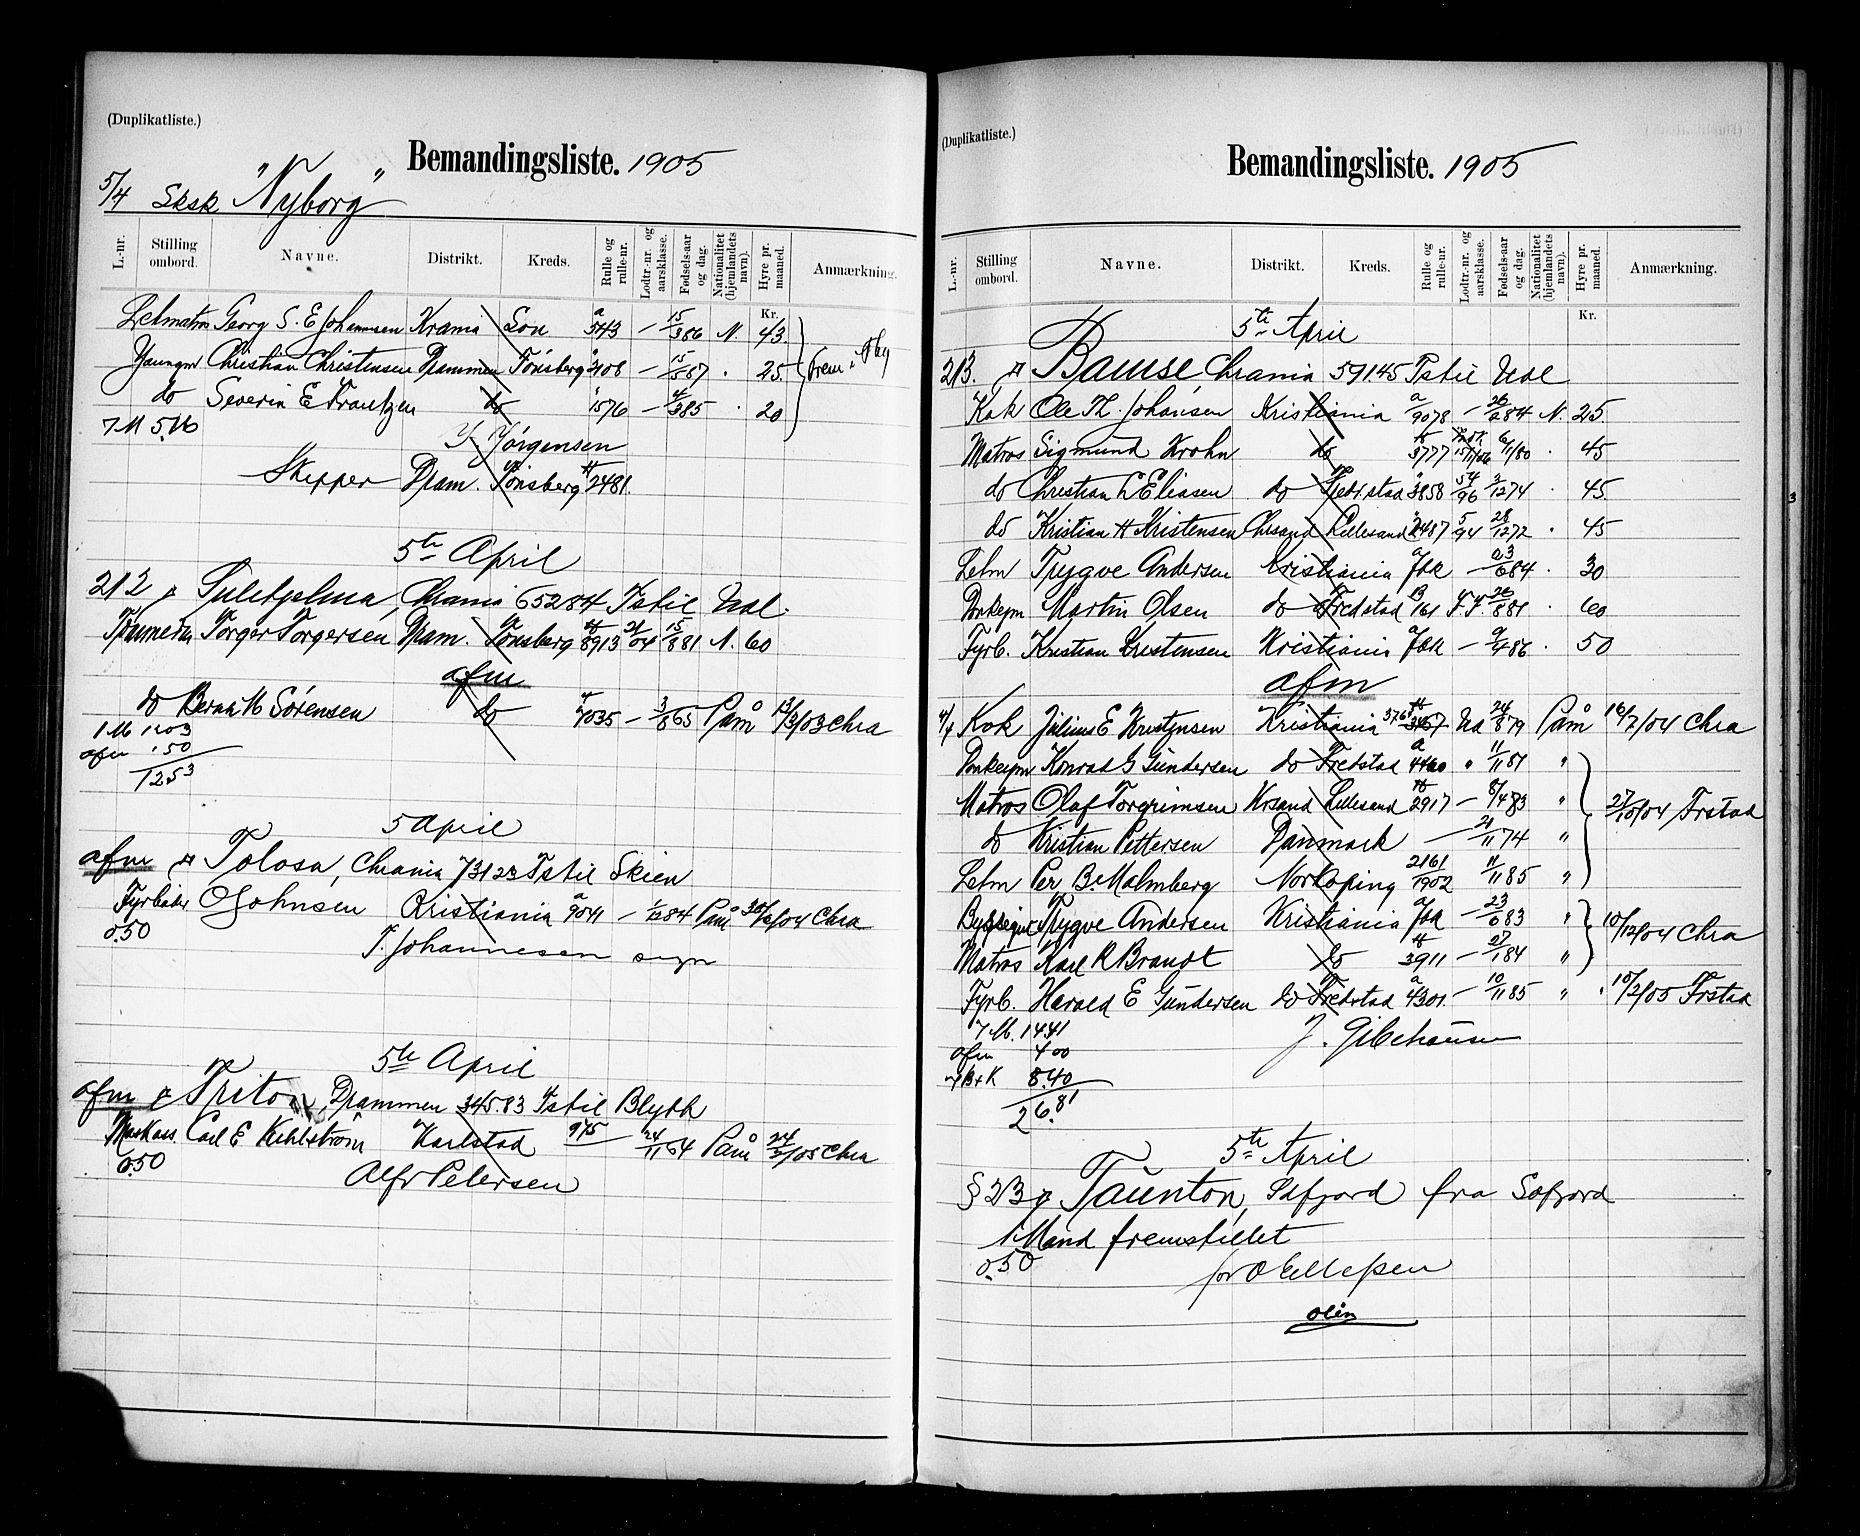 (Duplikatliste.)
Bemandingsliste. 1905
5/4 Sksk "Nyborg"
L.-nr. Stilling ombord. Navne. Distrikt. Kreds. Rulle og rulle-nr. Lodtr.-nr. og aarsklasse. Fødsels-aar og dag. Nationalitet (hjemlandets navn). Hyre pr. maaned. Anmærkning.
Kr.
Letmatros Georg S. E Johannsen Krania Son a 3743 — 15/386 N. 43.
Youngm Christian Christensen Drammen Tönsberg 2108 — 15/587 . 25.
do Severin E Frantzen do 1576 — 385 . 20
7 M
Jørgensen
Skipper Dram. Tönsberg 2481
5te April
212 Sulitjelma, Chrania 65284 Tstil Udl.
Torger Torgersen, Dram. Tönsberg 8913 21/04 15/881 N. 60
afm
do M Sörensen do 4035 — 3/865 Påm 13/3/03 Chra
1 M 1.03
afm .50
1.53
5 April
afm Tolosa, Chrania 73123 Tstil Skien
Fyrböder O Johnsen Kristiania a 9041 — 1/1284 Påm /04 Chra
0.50
T. Johannesen
5te April
afm Triton, Drammen 345.83 Tstil Blyth
Carl E Karlstad 975 24/1164 Påm 24/2/05 Chra
0.50
Alf Petersen
(Duplikatliste.)
Bemandingsliste. 1905
L.-nr. Stilling ombord. Navne. Distrikt. Kreds. Rulle og rulle-nr. Lodtr.-nr. og aarsklasse. Fødsels-aar og dag. Nationalitet (hjemlandets navn). Hyre pr. maaned. Anmærkning.
Kr.
5te April
213. Bamse, Chrania 59145 Tstil Udl
Kok Ole Th. Johansen Kristiania a 9078 — 26/284 N. 25.
Matros Sigmund Krohn do 3777 6/1180 . 45
do Christian L Eliasen do Fredr.stad 3858 54/96 3/1274 . 45
do Kristian H Kristensen Chrsand Lillesand 2487 5/94 28/1272 . 45
Letm Trygve Andersen Kristiania — 23/684 . 30
Donkeym Martin Olsen do Fredstad 161 F.F. 26/881 . 60
Fyrb. Kristian Kristensen Kristiania — 9/486 . 50
afm
Kok Julius E Kristensen Kristiania 3767 Ud 24/879 Påm 16/7/04 Chra
Donkeym Konrad G Gundersen do Fredstad a 4460 " 11/1181 "
Matros Olaf Torgrimsen Krsand Lillesand 2917 — 8/483 " 27/10/04 Frstad
do Kristian Pettersen Danmark — 21/1174 "
Letm Per B. Malmberg Norkøping 2161/1902 11/1185 "
Trygve Andersen Kristiania — 23/683 " 10/12/04 Chra
Matros Karl R Brandt do 3911 — 27/184 "
Fyrb. Harald E Gundersen do Fredstad a 4301 — 10/1185 " 10/2/05 Frstad
7 M. 14.41
J. Gilbehausen
afm 4.00
8.40
26.81
5te April
§ 213 Taunton, Idfjord fra Sofjord
1 Mand fremstillet
0.50
for O Ellefsen
olen